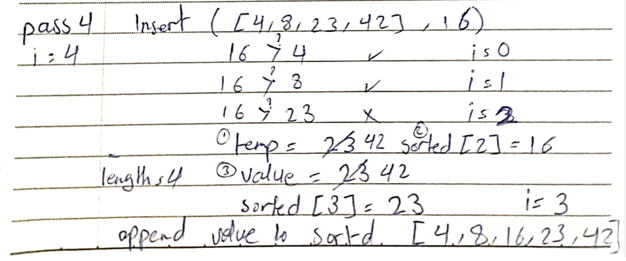 pass 4 Insert ( [4,8,23,42] , 16)
i = 4 16 >? 4 ✓ i=0
16 >? 8 ✓ i=1
16 >? 23 x i=2
① temp = 23 42 ② sorted [2] = 16
length=4 ③ value = 23 42
sorted [3] = 23 i= 3
append value to sortd. [4,8,16,23,42]